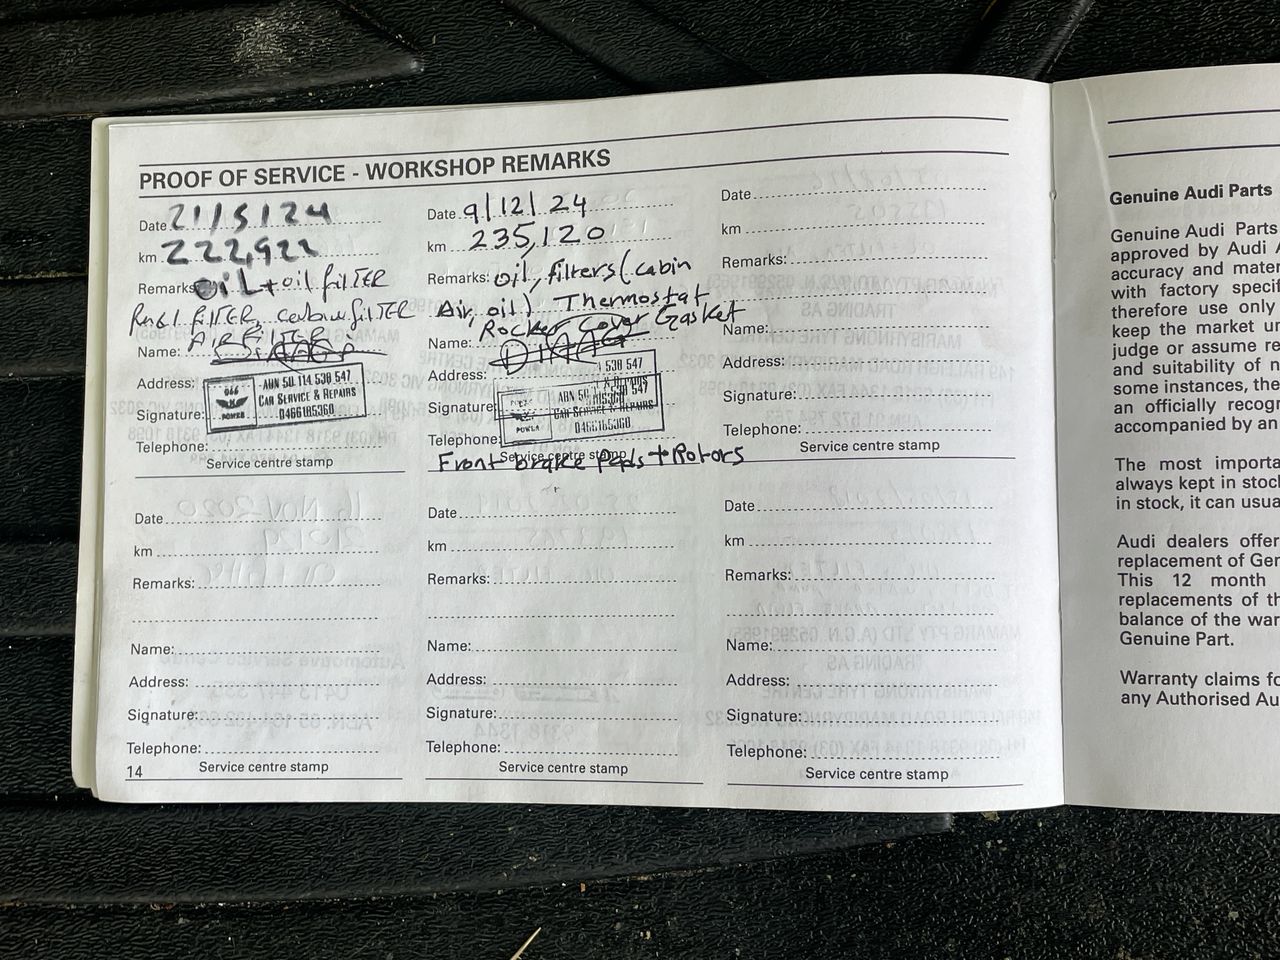 PROOF OF SERVICE - WORKSHOP REMARKS
Date 21/5/24
km 222,922
Remarks OiL + oil filTER
FilTER, filTER
AIR FilTER
Name:
Address:
Signature:
Telephone:
ABN 50 114 538 547
CAR SERVICE & REPAIRS
0466185360
POWER
Service centre stamp
Date 9/12/24
km 235,120
Remarks: oil, filters (cabin
Air, oil) Thermostat
Rocker Cover Gasket
Name:
Address:
Signature:
Telephone:
538 547
ABN 50
CAR SERVICE & REPAIRS
0466185360
Service centre stamp
Front brake Pads + Rotors
Date
km
Remarks:
Name:
Address:
Signature:
Telephone:
Service centre stamp
Date
km
Remarks:
Name:
Address:
Signature:
Telephone:
Service centre stamp
14
Date
km
Remarks:
Name:
Address:
Signature:
Telephone:
Service centre stamp
Date
km
Remarks:
Name:
Address:
Signature:
Telephone:
Service centre stamp
Genuine Audi Parts
Genuine Audi Parts
approved by Audi A
accuracy and mater
with factory specif
therefore use only
keep the market un
judge or assume re
and suitability of n
some instances, the
an officially recogr
accompanied by an
The most importa
always kept in stock
in stock, it can usua
Audi dealers offer
replacement of Ger
This 12 month
replacements of th
balance of the war
Genuine Part.
Warranty claims fo
any Authorised Au